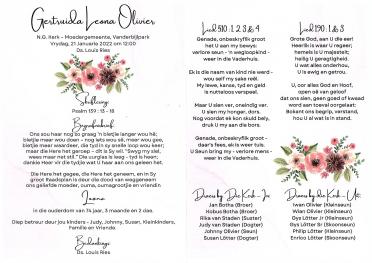 Gertruida Leona Olivier
N.G. Kerk - Moedergemeente, Vanderbijlpark
Vrydag, 21 Januarie 2022 om 12:00
Ds. Louis Ries
Skriflesing:
Psalm 139 : 13 - 18
Begrafnisbrief
Ons sou haar nog so graag 'n bietjie langer wou hê;
bietjie meer wou doen - nog iets wou sê, mooi wou gee,
bietjie meer waardeer, die tyd is sy snelle loop wou keer;
maar die Here het geroep - dit is Sy wil. "Swyg my siel,
wees maar net stil." Die uurglas is leeg - tyd is heer;
dankie Heer vir die tydjie wat U haar aan ons geleen het.
Die Here het gegee, die Here het geneem, en in Sy
groot Raadsplan in deur die dood van weggeneem
ons geliefde moeder, ouma, oumagrootjie en vriendin
Leona
in die ouderdom van 74 jaar, 3 maande en 2 dae.
Diep betreur deur jou kinders - Judy, Johnny, Susan, Kleinkinders,
Familie en Vriende.
Bedankings
Ds. Louis Ries
Lied 510 : 1, 2, 3 & 4
Genade, onbeskryflik groot
het U aan my bewys:
verlore seun - 'n wegloopkind -
weer in die Vaderhuis.
Ek is die naam van kind nie werd -
wou self my sake reël.
My lewe, kanse, tyd en geld
is nutteloos verspeel.
Maar U sien ver, oneindig ver.
U sien my honger, dors.
Nog voordat ek kon skuld bely,
druk U my aan u bors.
Genade, onbeskryflik groot -
daar's fees, ek is weer tuis.
U Seun bring my - verlore mens -
weer in die Vaderhuis.
Lied 190 : 1 & 3
Grote God, aan U die eer!
Heerlik is waar U regeer;
hemels is U majesteit;
heilig U geregtigheid.
U wat alles onderhou,
U is ewig en getrou.
U, oor alles God en Hoof,
open oë van geloof
dat ons sien, geen goed of kwaad
word aan toeval oorgelaat.
Bokant ons begrip, verstand,
hou U al wat is in stand.
Draers by Die Kerk - In
Jan Botha (Broer)
Kobus Botha (Broer)
Rika van Staden (Suster)
Judy van Staden (Dogter)
Johnny Olivier (Seun)
Susan Lötter (Dogter)
Draers by die Kerk - Uit
Iwan Olivier (Kleinseun)
Wian Olivier (Kleinseun)
Gys Lötter Jr (Kleinseun)
Gys Lötter Sr (Skoonseun)
Philip Lötter (Kleinseun)
Enrico Lötter (Skoonseun)